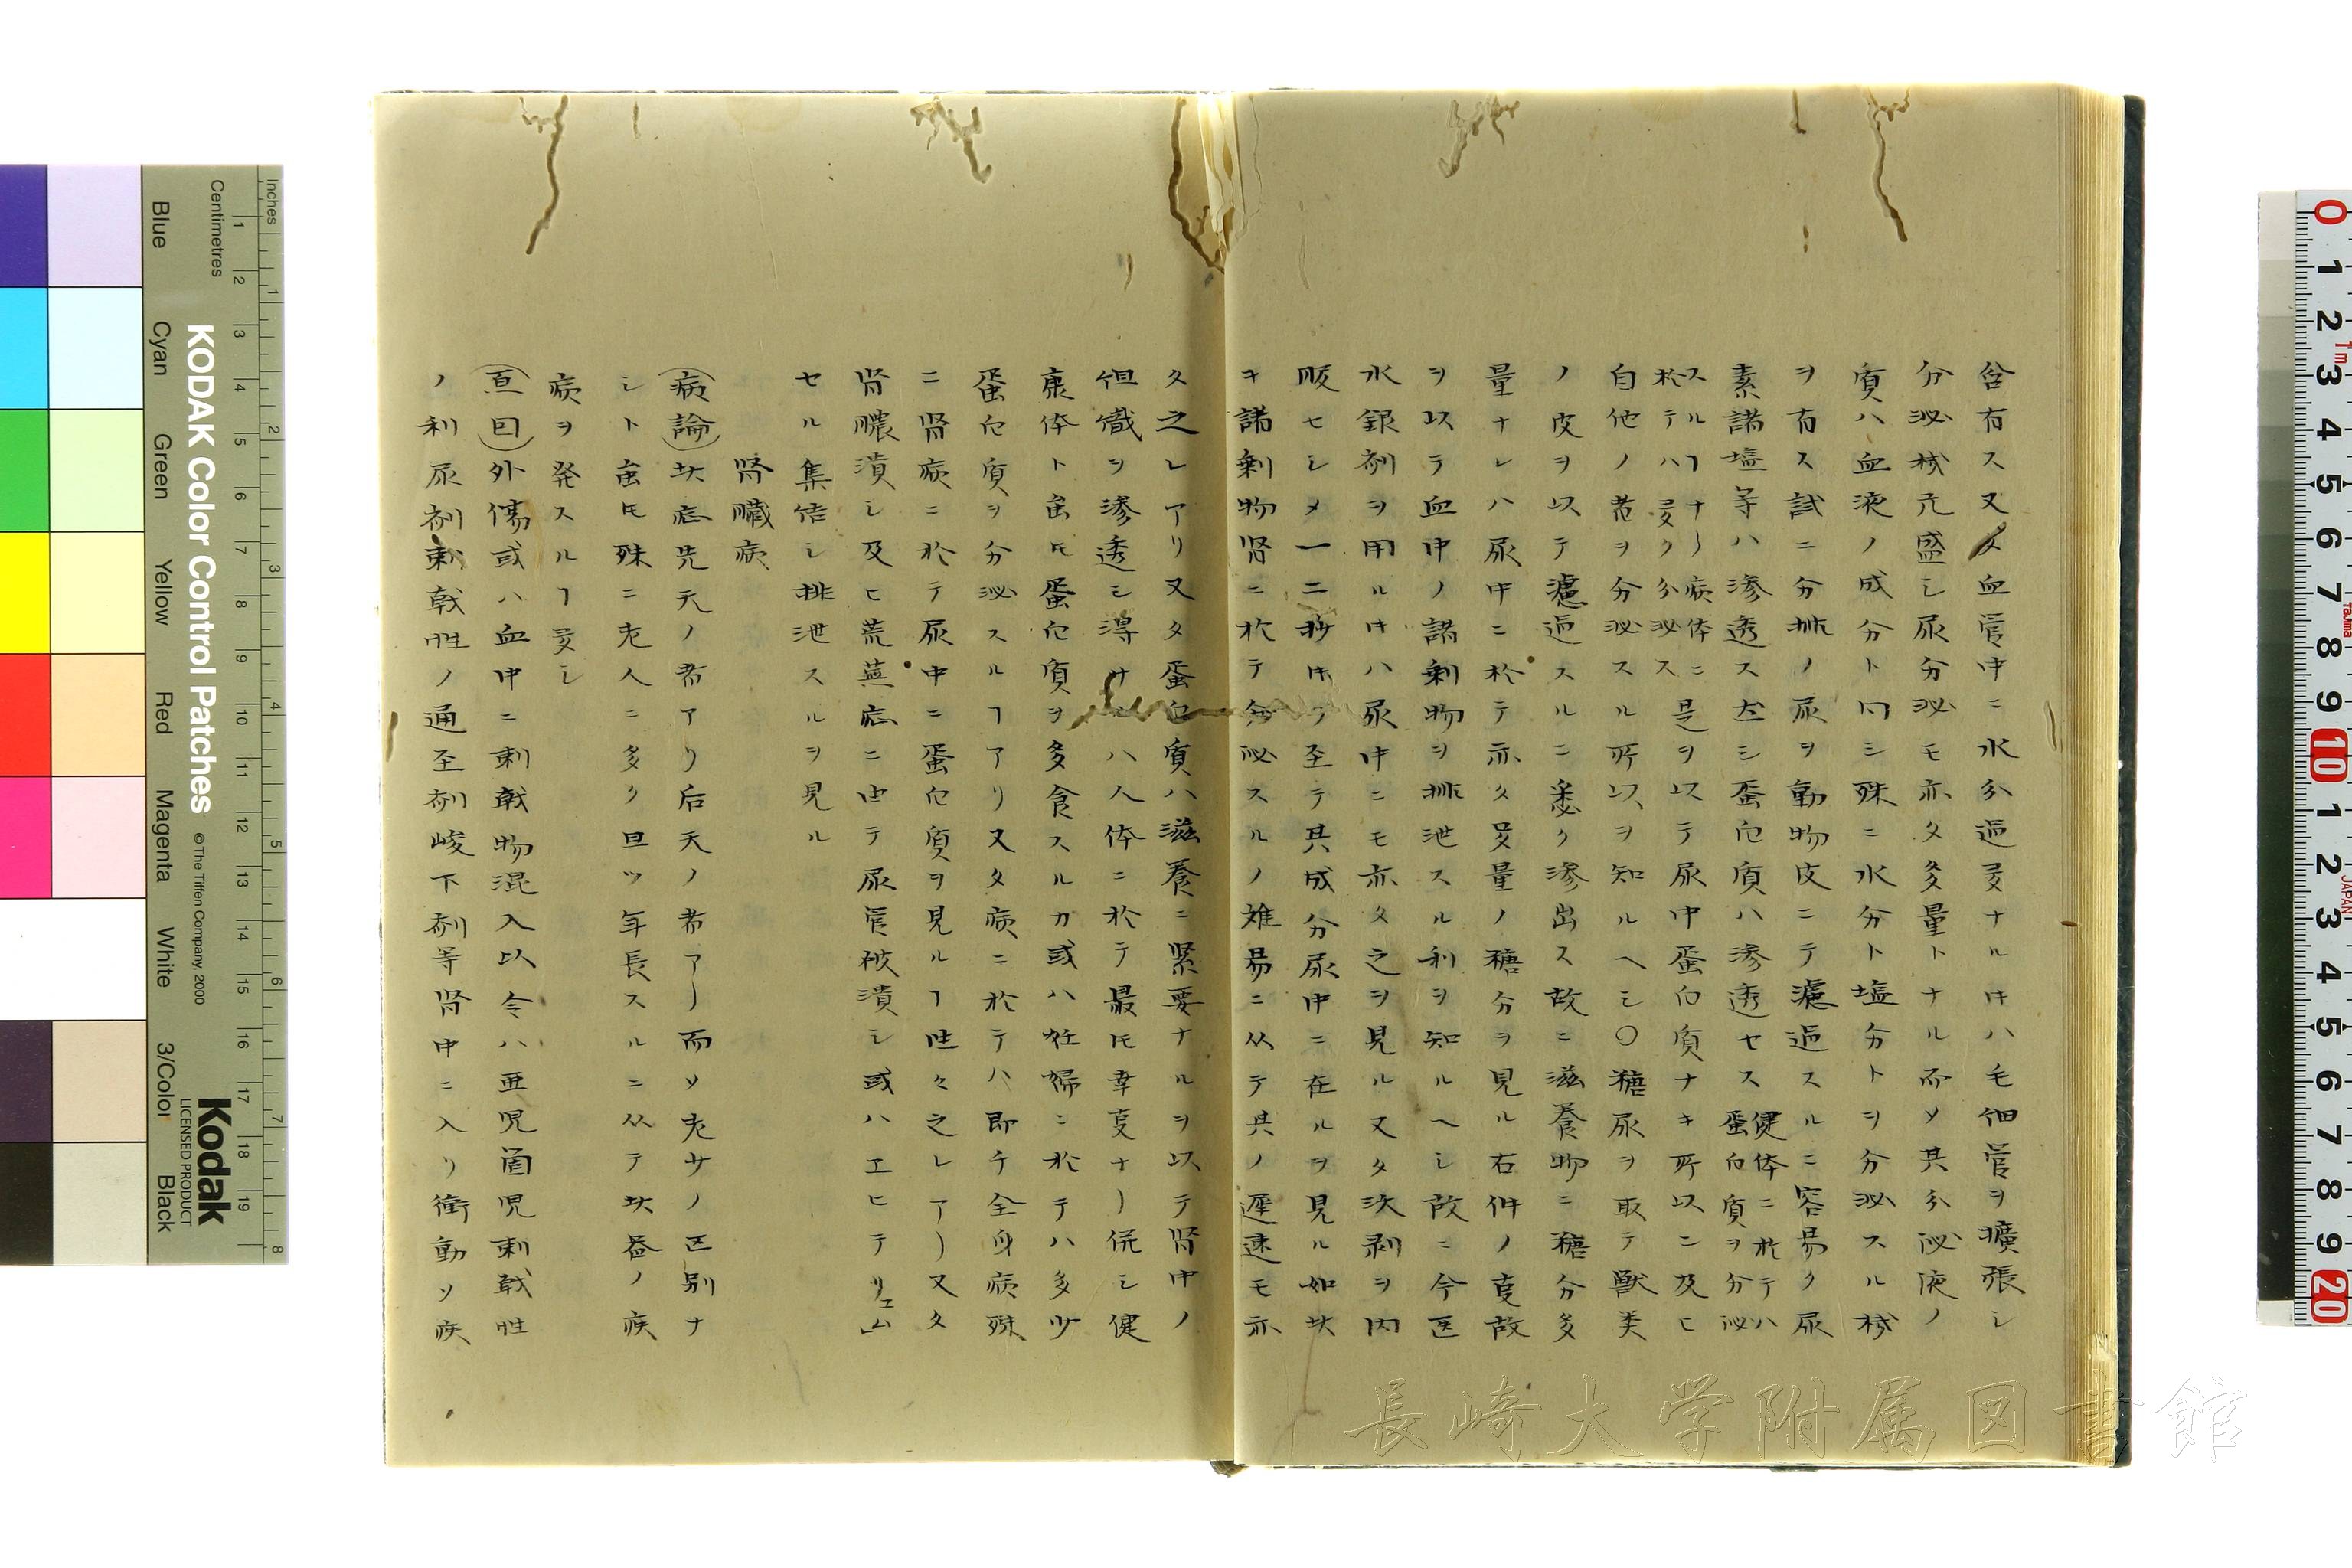 含有ス又タ血管中ニ水分過多ナル𪜈ハ毛細管ヲ擴張シ
分泌機亢盛シ尿分泌モ亦タ多量トナル而ソ其分泌液ノ
質ハ血液ノ成分ト同シ殊ニ水分ト塩分トヲ分泌スル機
ヲ有ス試ニ分排ノ尿ヲ動物皮ニテ濾過スルニ容易ク尿
素諸塩等ハ滲透ス然シ蛋白質ハ滲透セス健体ニ於テハ
蛋白質ヲ分泌
スルヿナ〳病体ニ
於テハ多ク分泌ス是ヲ以テ尿中蛋白質ナキ所以ニ及ヒ
自他ノ者ヲ分泌スル所以ヲ知ルヘシ〇糖尿ヲ取テ獣类
ノ皮ヲ以テ濾過スルニ悉ク滲出ス故ニ滋養物ニ糖分多
量ナレハ尿中ニ於テ亦タ多量ノ糖分ヲ見ル右件ノ㕝故
ヲ以テ血中ノ諸剰物ヲ排泄スル利ヲ知ルヘシ故ニ今医
水銀剤ヲ用ル𪜈ハ尿中ニモ亦タ之ヲ見ル又タ沃剥ヲ内
服セシメ一二秒時ヲ至テ其成分尿中ニ在ルヲ見ル如此
キ諸剰物腎ニ於テ分泌スルノ難易ニ从テ其ノ遅速モ亦
タ之レアリ又タ蛋白質ハ滋養ニ緊要ナルヲ以テ腎中ノ
但織ヲ滲透シ得サルハ人体ニ於テ最𪜈幸㕝ナ〳併シ健
康体ト虽𪜈蛋白質ヲ多食スルカ或ハ妊婦ニ於テハ多少
蛋白質ヲ分泌スルヿアリ又タ病ニ於テハ即チ全身病殊
ニ腎病ニ於テ尿中ニ蛋白質ヲ見ルヿ往々之レア〳又タ
腎膿潰シ及ヒ荒蕪症ニ由テ尿管被潰シ或ハエヒテリュム
セル集結シ排泄スルヲ見ル
腎臓病
(病論)此症先天ノ者アリ后天ノ者ア〳而ソ老少ノ区別ナ
シト虽𪜈殊ニ老人ニ多ク且ツ年長スルニ从テ此器ノ疾
病ヲ発スルヿ多シ
(原因)外傷或ハ血中ニ刺戟物混入以令ハ亜児箇児刺戟性
ノ利尿剤刺戟性ノ通至剤峻下剤等腎中ニ入リ衝動ソ疾